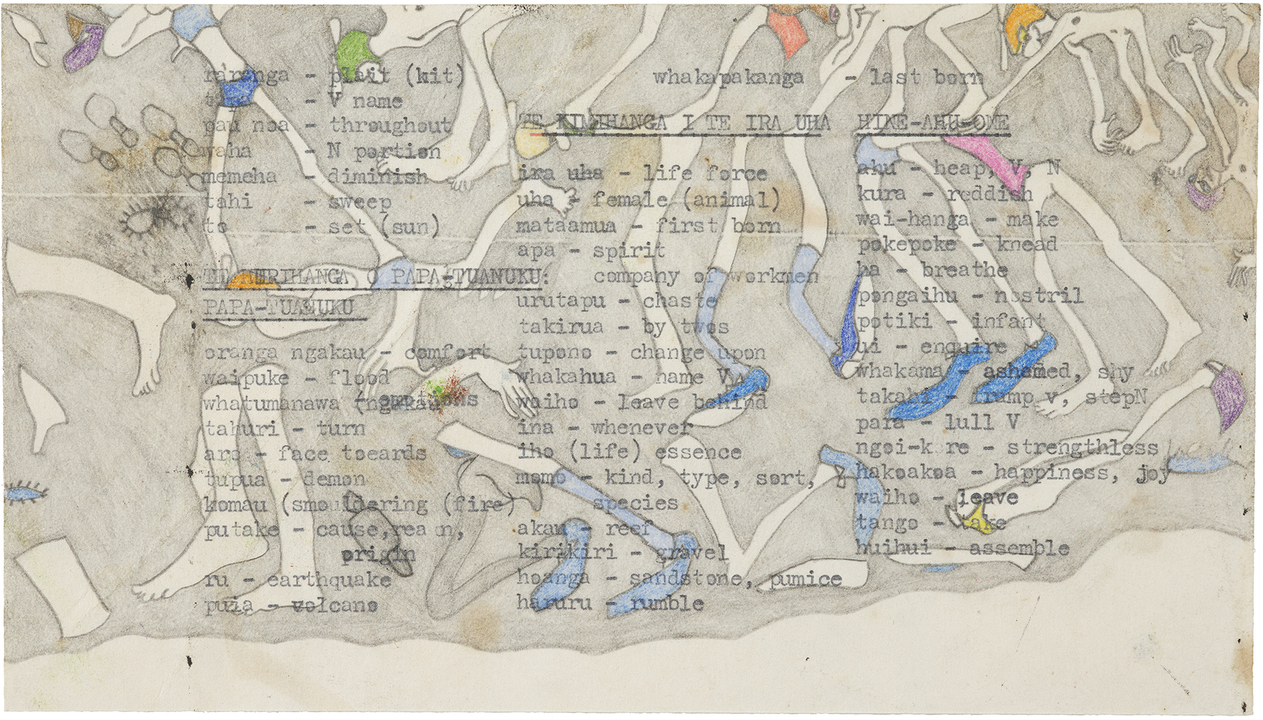 raranga - plait (kit)
- V name
pau noa - throughout
waha - N portion
memeha - diminish
tahi - sweep
to - set (sun)
O PAPA-TUANUKU:
PAPA-TUANUKU
oranga ngakau - comfort
waipuke - flood
whatumanawa (ngakau
tahuri - turn
aro - face toeards
tupua - demon
komau (smouldering (fire)
putake - cause,
origin
ru - earthquake
puia - volcano
whakapakanga - last born
TE KIMIHANGA I TE IRA UHA
ira uha - life force
uha - female (animal)
mataamua - first born
apa - spirit
company of workmen
urutapu - chaste
takirua - by twos
tupono - change upon
whakahua - name V
waiho - leave behind
ina - whenever
iho (life) essence
momo - kind, type, sort,
species
akau - reef
kirikiri - gravel
hoanga - sandstone, pumice
haruru - rumble
HINE-AHU-ONE
ahu - heap, V, N
kura - reddish
wai-hanga - make
pokepoke - knead
ha - breathe
pongaihu - nostril
potiki - infant
ui - enquire
whakama - ashamed, shy
takahi - tramp v, stepN
para - lull V
- strengthless
hakoakoa - happiness, joy
waiho - leave
tango - take
huihui - assemble